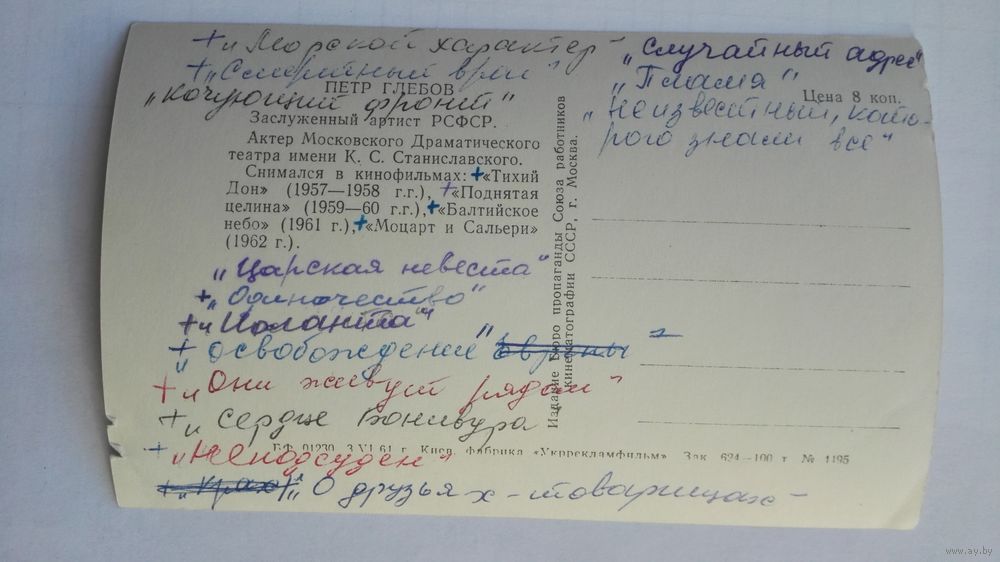 + „Морской характер“
+ „Смертный враг“
ПЕТР ГЛЕБОВ
„Кочующий фронт“
Заслуженный артист РСФСР.
Актер Московского Драматического
театра имени К. С. Станиславского.
Снимался в кинофильмах: +«Тихий
Дон» (1957—1958 г.г.), +«Поднятая
целина» (1959—60 г.г.),+«Балтийское
небо» (1961 г.),+«Моцарт и Сальери»
(1962 г.).
„Царская невеста“
+ „Одиночество“
+ „Иоланта“
+ „Освобождение“ Европы
+ „Они живут рядом“
+ „Сердце Бонивура“
+ „Неподсуден“
+ „Крах“ „О друзьях-товарищах“
„Случайный адрес“
„Пламя“
Цена 8 коп.
„Неизвестный, кото-
рого знали все“
Издание Бюро пропаганды Союза работников
кинематографии СССР, г. Москва.
БФ 01230 3 VI 61 г. Киев, фабрика «Укррекламфильм» Зак 624—100 т № 1195
www.ay.by